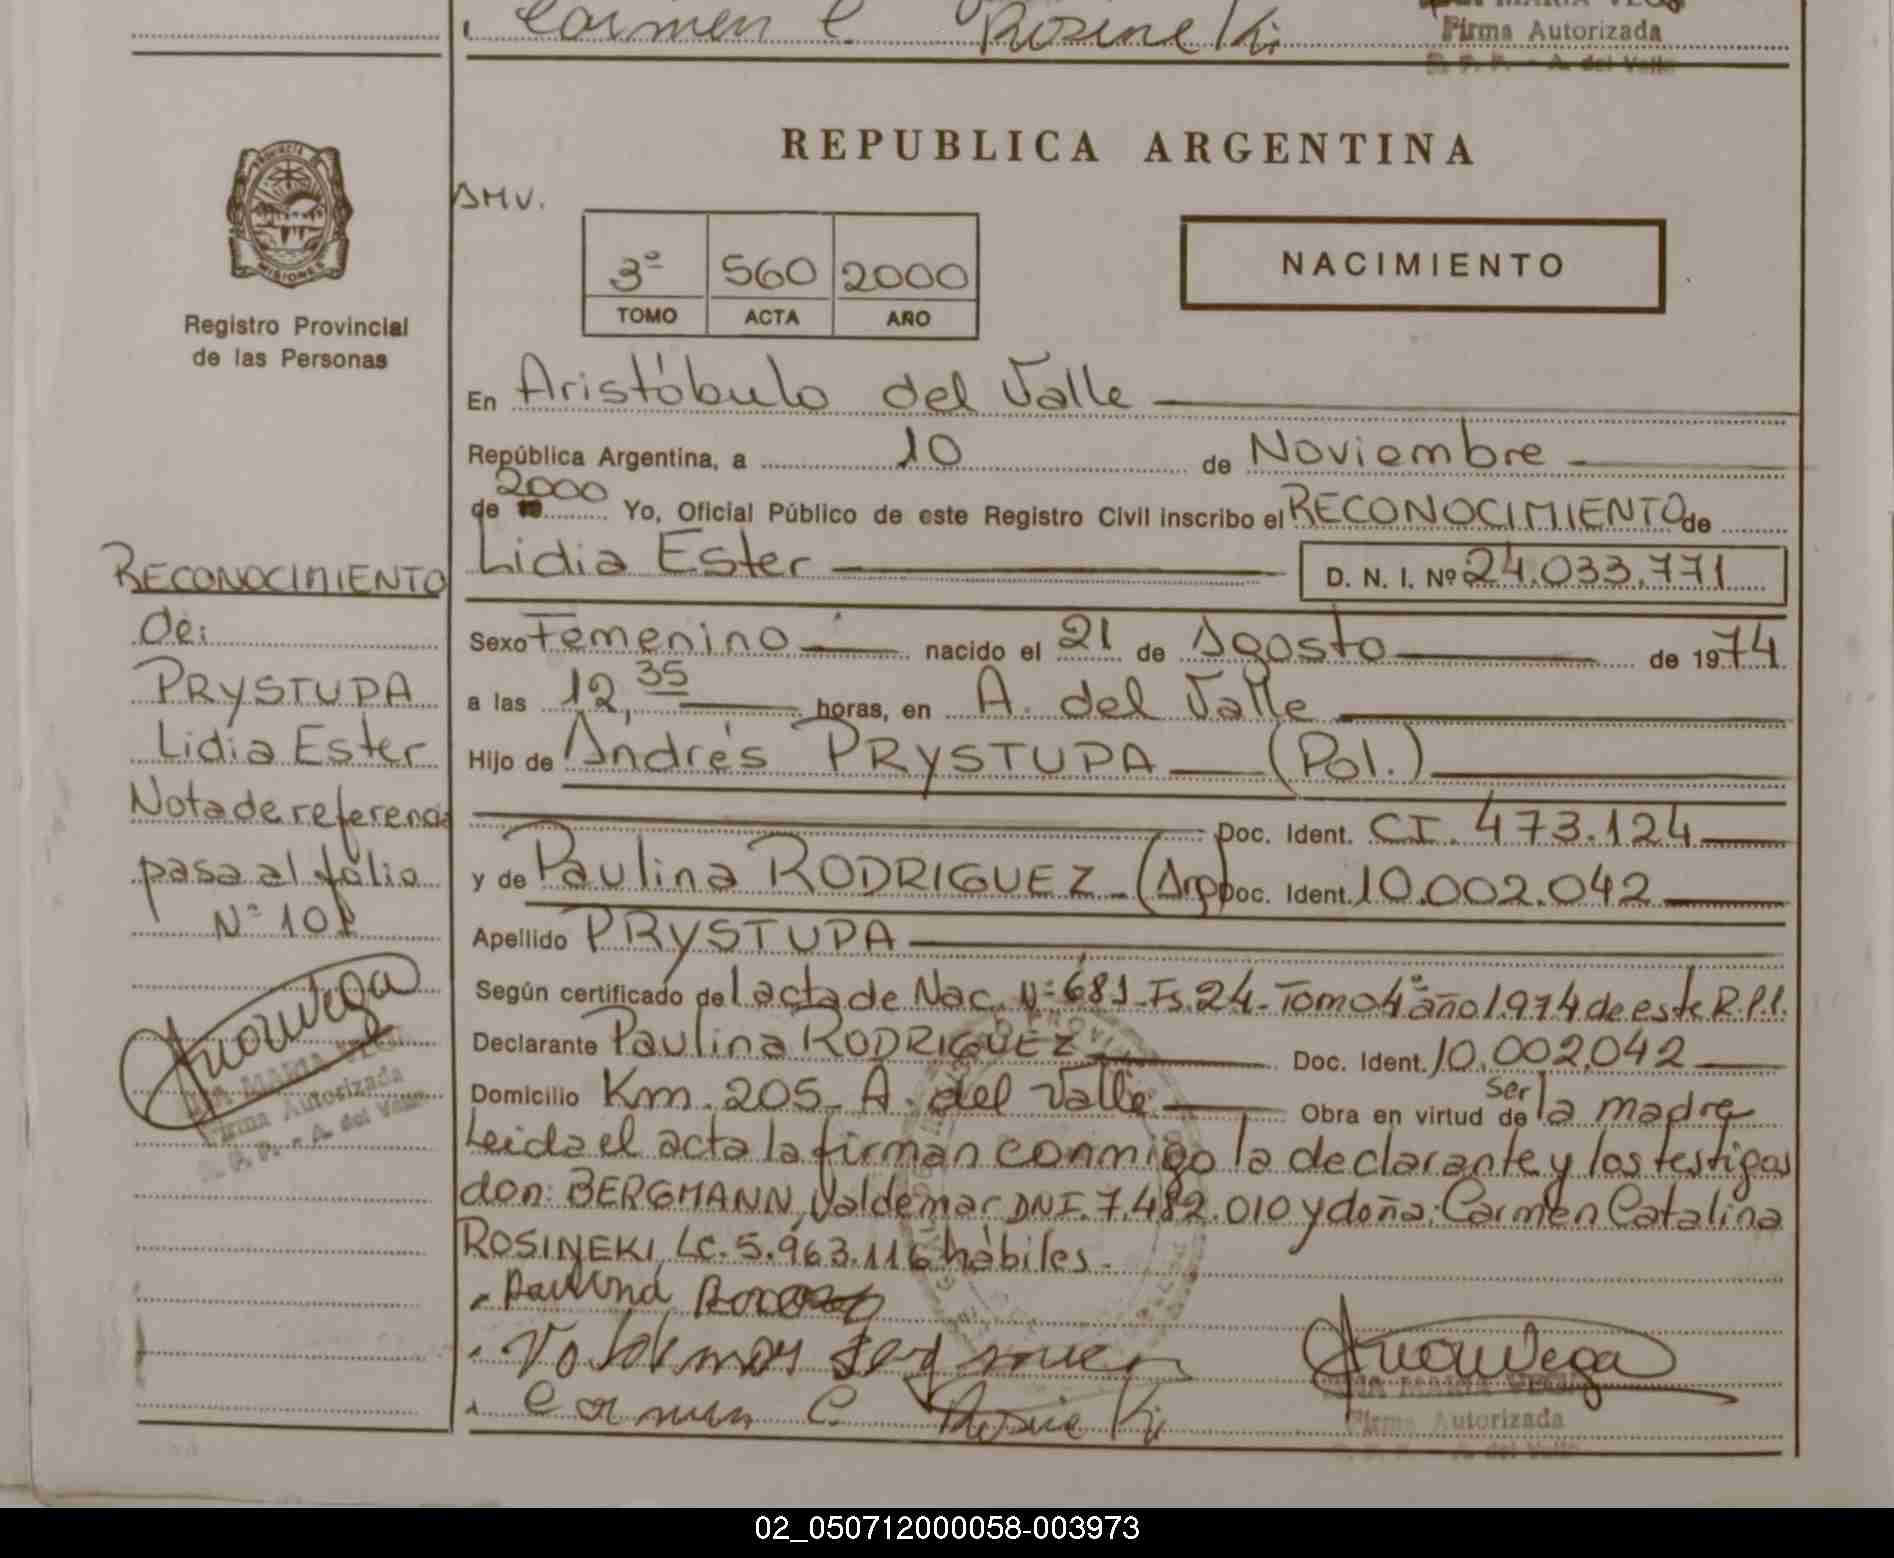 Carmen C. Rosineki
Firma Autorizada
R. P. P. - A. del Valle
REPUBLICA ARGENTINA
PROVINCIA DE
MISIONES
AMV.
3º 560 2000
TOMO ACTA AÑO
NACIMIENTO
Registro Provincial
de las Personas
En Aristóbulo del Valle
República Argentina, a 10 de Noviembre
de 19 2000 Yo, Oficial Público de este Registro Civil inscribo el RECONOCIMIENTO de
Lidia Ester D. N. I. Nº 24.033.771
Sexo Femenino nacido el 21 de Agosto de 1974
a las 12,35 horas, en A. del Valle
Hijo de Andrés PRYSTUPA (Pol.)
Doc. Ident. CI. 473.124
y de Paulina RODRIGUEZ (Arg) Doc. Ident. 10.002.042
Apellido PRYSTUPA
Según certificado del acta de Nac. Nº 681-Fs.24-Tomo 4º año 1.974 de este R.P.P.
Declarante Paulina RODRIGUEZ Doc. Ident. 10.002.042
Domicilio Km. 205- A. del Valle Obra en virtud de ser la madre
Leida el acta la firman conmigo la declarante y los testigos
don: BERGMANN, Valdemar DNI. 7.482.010 y doña: Carmen Catalina
ROSINEKI, LC. 5.963.116 hábiles.
Paulina
Carmen C. Rosineki
ANA MARIA VEGA
Firma Autorizada
R. P. P. - A. del Valle
RECONOCIMIENTO
de:
PRYSTUPA
Lidia Ester
Nota de referencia
pasa al folio
Nº 101
ANA MARIA VEGA
Firma Autorizada
R. P. P. - A. del Valle
02_050712000058-003973